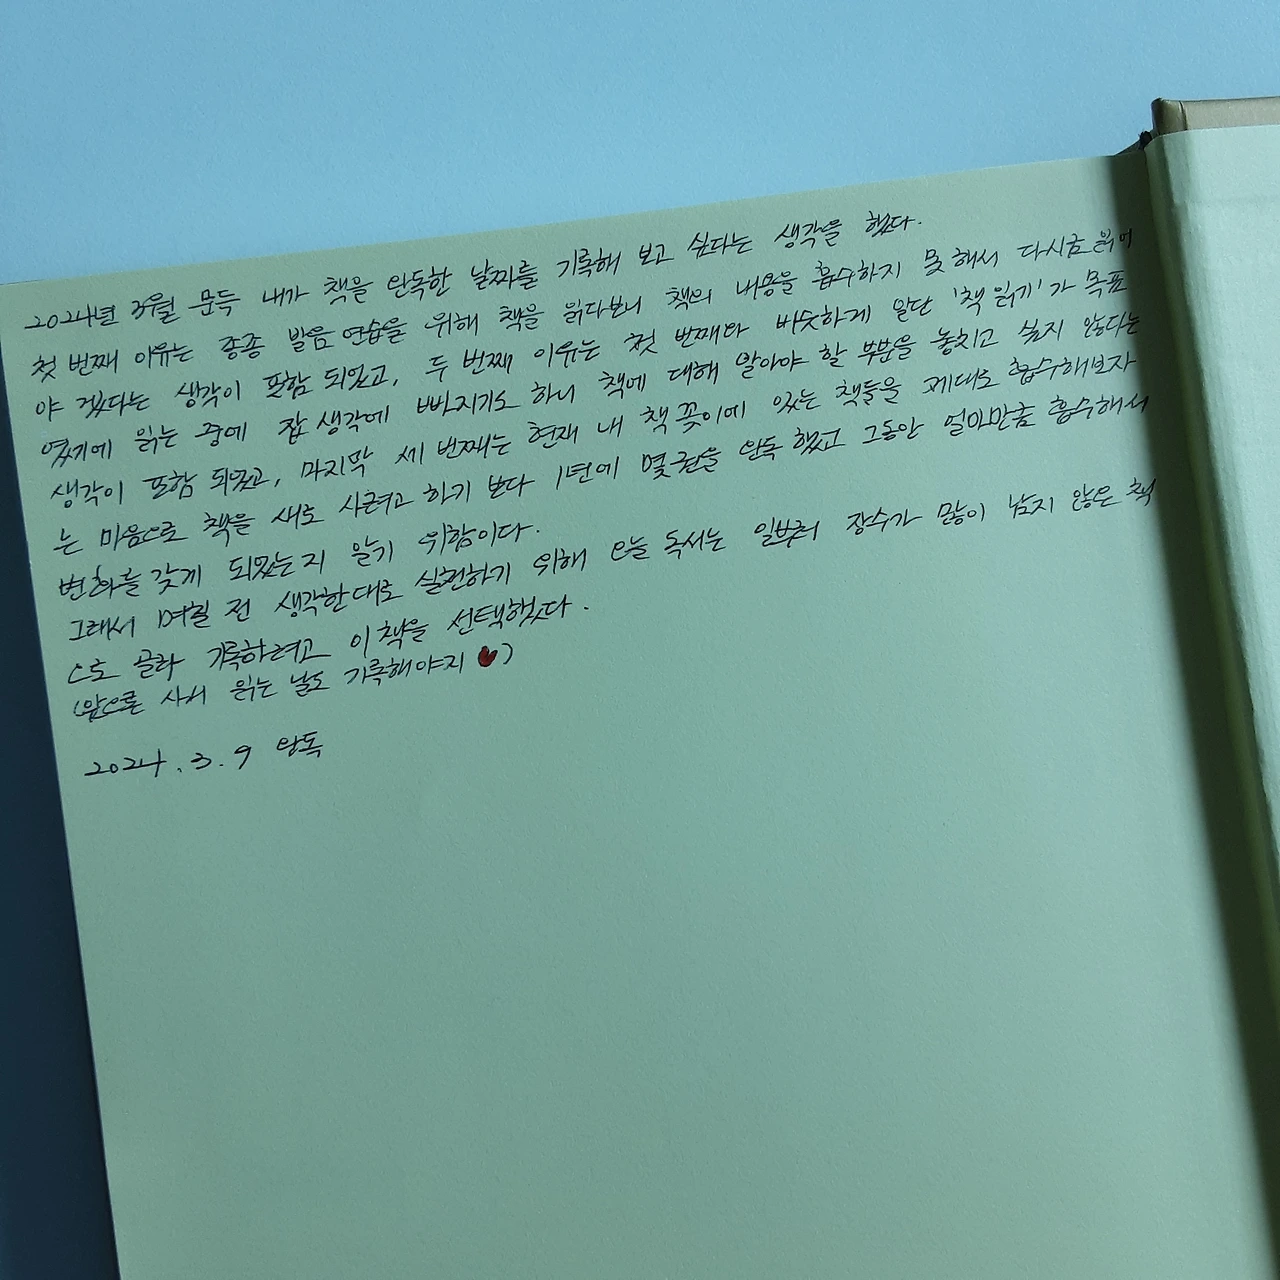 2024년 3월 문득 내가 책을 완독한 날짜를 기록해 보고 싶다는 생각을 했다.
첫 번째 이유는 종종 발음 연습을 위해 책을 읽다보니 책의 내용을 흡수하지 못해서 다시금 읽어
야 겠다는 생각이 포함 되었고, 두 번째 이유는 첫 번째와 비슷하게 일단 '책 읽기'가 목표
였기에 읽는 중에 잡 생각에 빠지기도 하니 책에 대해 알아야 할 부분을 놓치고 싶지 않다는
생각이 포함 되었고, 마지막 세 번째는 현재 내 책꽂이에 있는 책들을 제대로 흡수해보자
는 마음으로 책을 새로 사려고 하기 보다 1년에 몇권을 완독 했고 그동안 얼마만큼 흡수해서
변화를 갖게 되었는지 알기 위함이다.
그래서 며칠 전 생각한대로 실천하기 위해 오늘 독서는 일부러 장수가 많이 남지 않은 책
으로 골라 기록하려고 이 책을 선택했다.
(앞으론 사서 읽는 날도 기록해야지 ♥)
2024.3.9 완독